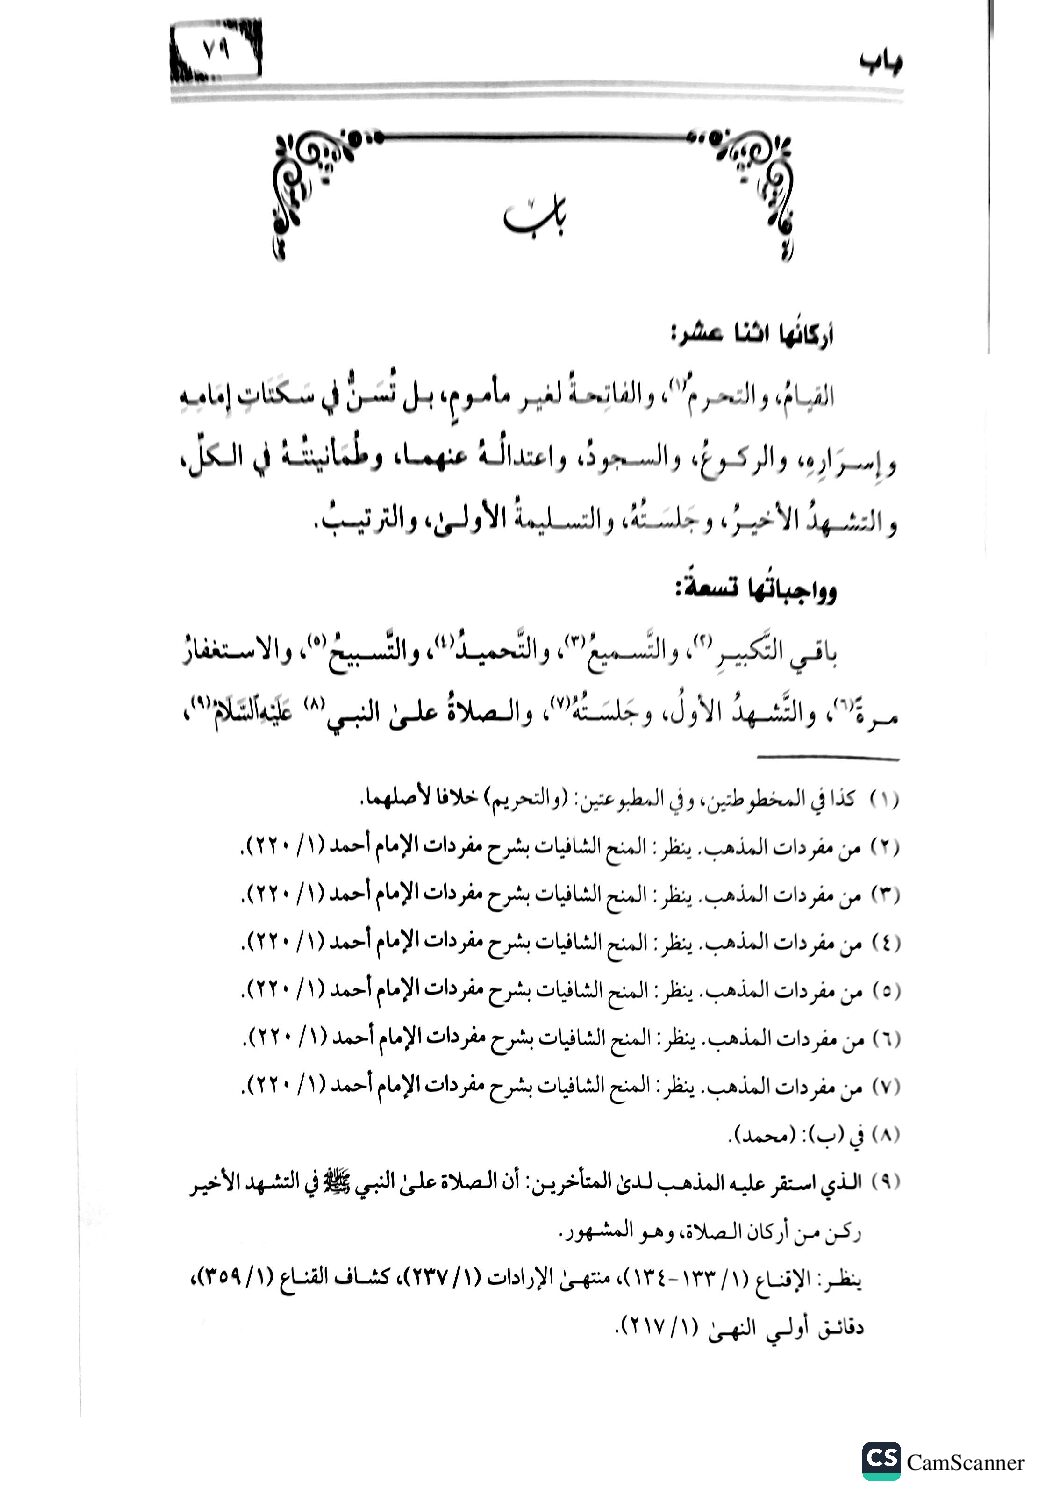 باب
٧٩
باب
أركانُها اثنا عشر:
القيامُ، والتحرمُ(١)، والفاتِحةُ لغير مأمومٍ، بل تُسَنُّ في سَكَتَاتِ إمَامِهِ
وإسرَارِهِ، والركوعُ، والسجودُ، واعتدالُهُ عنهما، وطُمَأنينتُهُ في الكلِّ،
والتشهدُ الأخيرُ، وجَلسَتُهُ، والتسليمةُ الأولىٰ، والترتيبُ.
وواجباتُها تسعةُ:
باقي التَّكبيرِ(٢)، والتَّسميعُ(٣)، والتَّحميدُ(٤)، والتَّسبيحُ(٥)، والاستغفارُ
مرةً(٦)، والتَّشهدُ الأولُ، وجَلسَتُهُ(٧)، والصلاةُ علىٰ النبي(٨) عَلَيْهِ السَّلَامُ(٩)،
(١) كذا في المخطوطتين، وفي المطبوعتين: (والتحريم) خلافا لأصلهما.
(٢) من مفردات المذهب. ينظر: المنح الشافيات بشرح مفردات الإمام أحمد (١/ ٢٢٠).
(٣) من مفردات المذهب. ينظر: المنح الشافيات بشرح مفردات الإمام أحمد (١/ ٢٢٠).
(٤) من مفردات المذهب. ينظر: المنح الشافيات بشرح مفردات الإمام أحمد (١/ ٢٢٠).
(٥) من مفردات المذهب. ينظر: المنح الشافيات بشرح مفردات الإمام أحمد (١/ ٢٢٠).
(٦) من مفردات المذهب. ينظر: المنح الشافيات بشرح مفردات الإمام أحمد (١/ ٢٢٠).
(٧) من مفردات المذهب. ينظر: المنح الشافيات بشرح مفردات الإمام أحمد (١/ ٢٢٠).
(٨) في (ب): (محمد).
(٩) الذي استقر عليه المذهب لدىٰ المتأخرين: أن الصلاة علىٰ النبي ﷺ في التشهد الأخير
ركن من أركان الصلاة، وهو المشهور.
ينظر: الإقناع (١/ ١٣٣-١٣٤)، منتهىٰ الإرادات (١/ ٢٣٧)، كشاف القناع (١/ ٣٥٩)،
دقائق أولي النهىٰ (١/ ٢١٧).
CS CamScanner